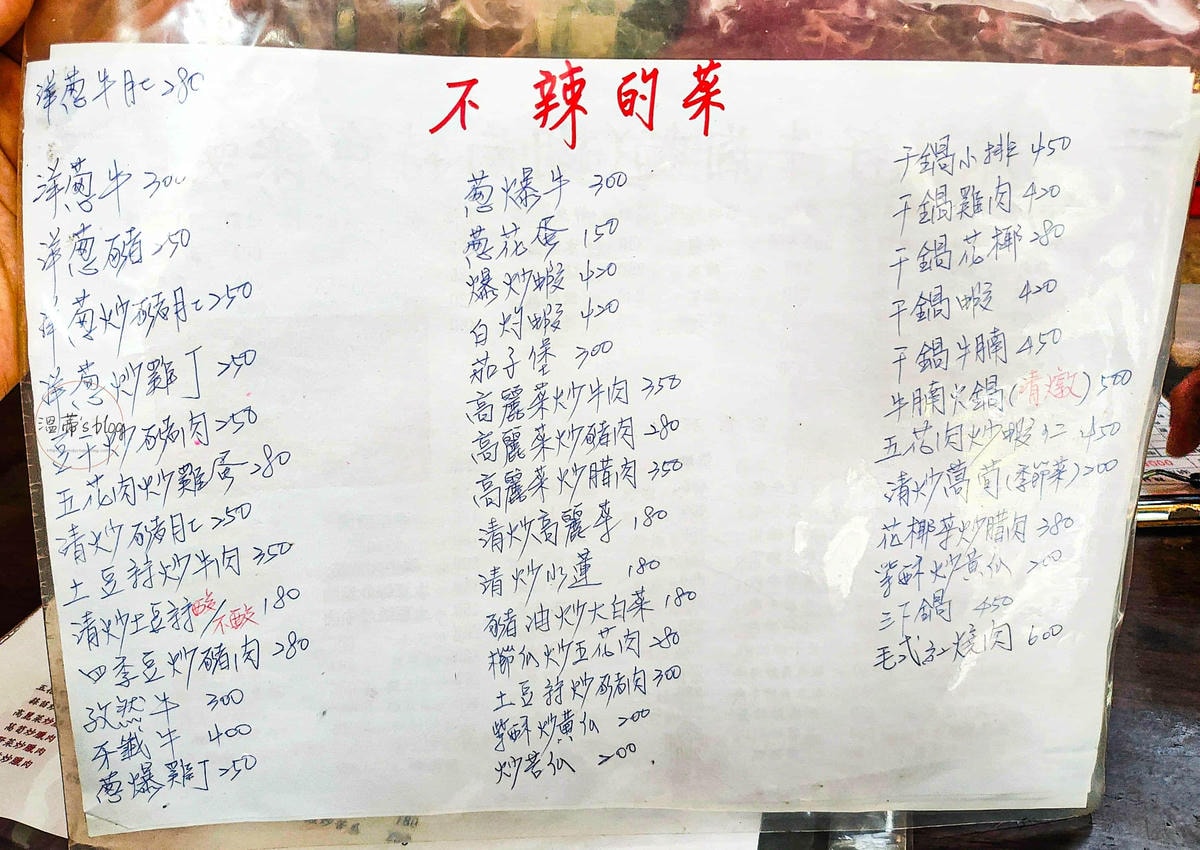 不辣的菜
洋蔥牛月匕 280
洋蔥牛 300
洋蔥豬 250
洋蔥炒豬月匕 250
洋蔥炒雞丁 250
溫蒂's blog
豆干炒豬肉 250
五花肉炒雞蛋 280
清炒豬月匕 250
土豆絲炒牛肉 350
清炒土豆絲酸/不酸 180
四季豆炒豬肉 280
孜然牛 300
牙籤牛 400
蔥爆雞丁 250
蔥爆牛 300
蔥花蛋 150
爆炒蝦 420
白灼蝦 420
茄子堡 300
高麗菜炒牛肉 350
高麗菜炒豬肉 280
高麗菜炒腊肉 350
清炒高麗菜 180
清炒水蓮 180
豬油炒大白菜 180
櫛瓜炒五花肉 280
土豆絲炒豬肉 300
紫酥炒黃瓜 200
炒苦瓜 200
干鍋小排 450
干鍋雞肉 420
干鍋花椰 280
干鍋蝦 420
干鍋牛腩 450
牛腩火鍋(清燉) 500
五花肉炒蝦仁 450
清炒萵筍(季節菜) 200
花椰菜炒腊肉 380
紫酥炒黃瓜 200
三下鍋 450
毛式紅燒肉 600